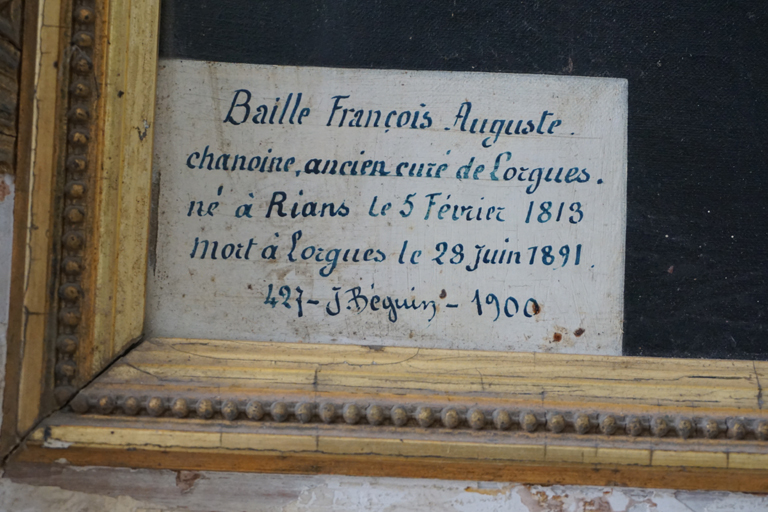 Baille François Auguste.
chanoine, ancien curé de Lorgues.
né à Rians le 5 Février 1813
mort à Lorgues le 28 Juin 1891.
427 - J. Béguin - 1900